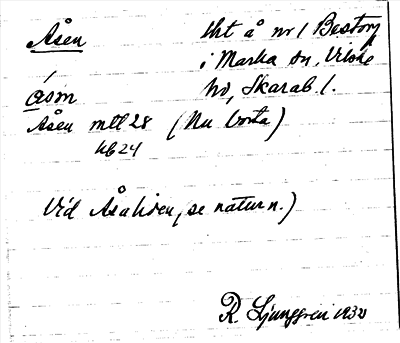 Åsen
tht å nr 1 Bestorp
i Marka sn, Vilske
hd, Skarab. l.
åsm
Åsen mtl 28 (Nu borta)
hb 24
Vid Åsaliden, se naturn.)
R Ljunggren 1932